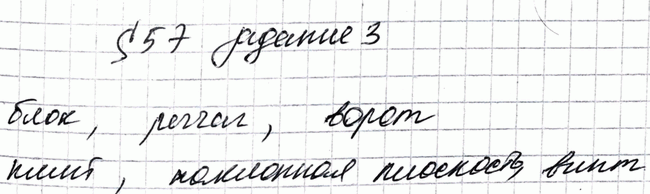 §57 задание 3
блок, рычаг, ворот
клин, наклонная плоскость, винт